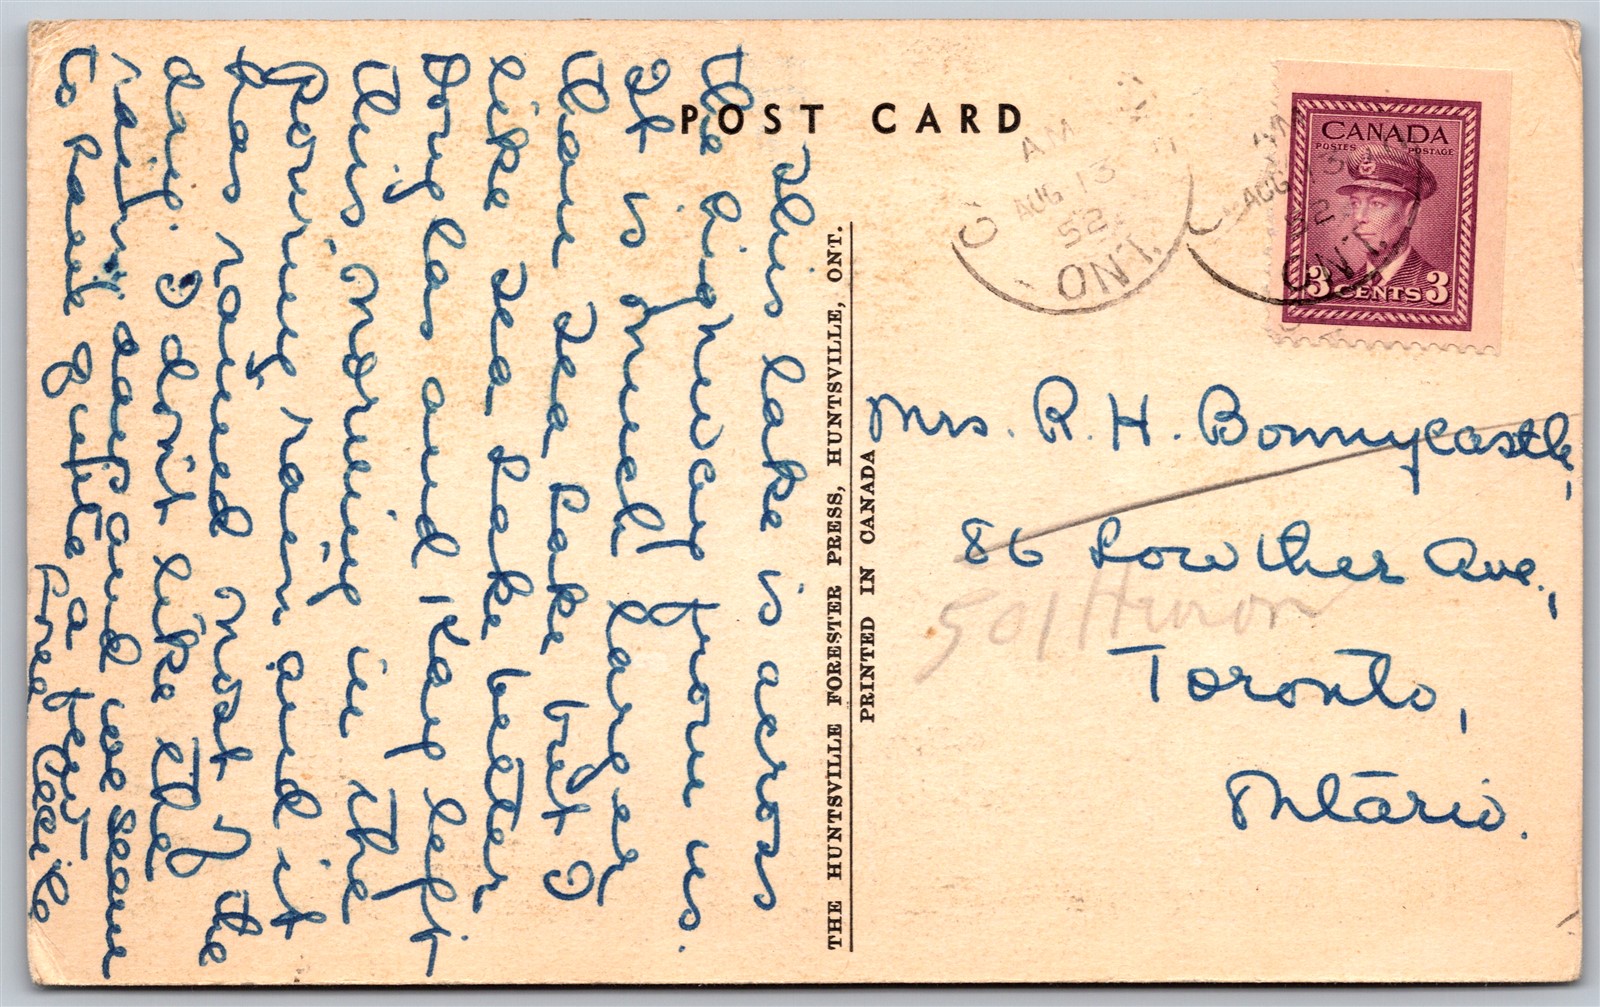 POST CARD
This lake is across
the highway from us.
It is much larger
than Sea Lake but I
like Sea Lake better
Douglas and Kay left
this morning in the
pouring rain and it
has rained most of the
day. I don't like the
rainy days and we seem
to have quite a few.
Love Cecile
THE HUNTSVILLE FORESTER PRESS, HUNTSVILLE, ONT.
PRINTED IN CANADA
AM
AUG 13
52
ONT.
AM
AUG 13
52
ONT.
CANADA
POSTES POSTAGE
3 CENTS 3
Mrs. R. H. Bonnycastle,
86 Lowther Ave.,
501 Huron
Toronto,
Ontario.